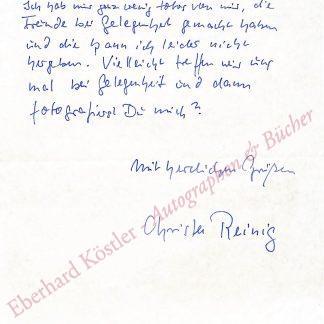 Ich hab nur ganz wenig Fotos von mir, die
Freunde bei Gelegenheit gemacht haben
und die kann ich leider nicht
hergeben. Vielleicht treffen wir uns
mal bei Gelegenheit und dann
fotografierst Du mich?
Mit herzlichen Grüßen
Christa Reinig
Eberhard Köstler Autographen & Bücher